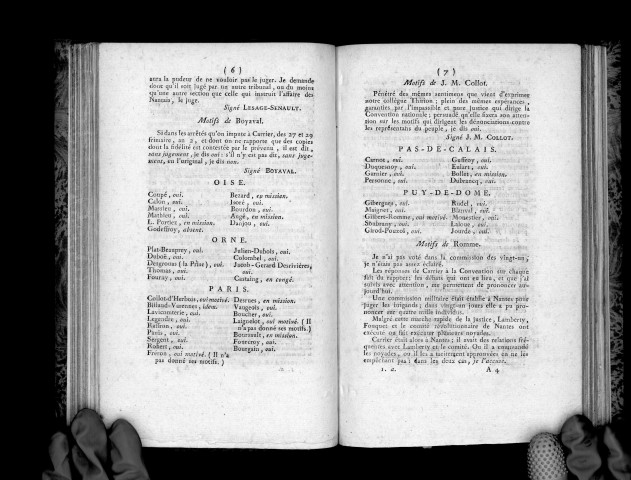 ( 6 )
aura la pudeur de ne vouloir pas le juger. Je demande
donc qu'il soit jugé par un autre tribunal, ou du moins
qu'une autre section que celle qui instruit l'affaire des
Nantais, le juge.
Signé LESAGE-SENAULT.
Motifs de BOYAVAL.
Si dans les arrêtés qu'on impute à Carrier, des 27 et 29
frimaire, an 2, et dont on ne rapporte que des copies
dont la fidélité est contestée par le prévenu, il est dit,
sans jugement, je dis oui : s'il n'y est pas dit, sans juge-
ment, en l'original, je dis non.
Signé BOYAVAL.
OISE.
Coupé, oui.
Calon, oui.
Massieu, oui.
Mathieu, oui.
L. Portiez, en mission.
Godefroy, absent.
Bezard, en mission.
Isoré, oui.
Bourdon, oui.
Auger, en mission.
Danjou, oui.
ORNE.
Plat-Beauprey, oui.
Duboë, oui.
Desgrouas ( la Prise ), oui.
Thomas, oui.
Fourny, oui.
Julien-Dubois, oui.
Colombel, oui.
Jacob-Gerard Desrivières,
oui.
Castaing, en congé.
PARIS.
Collot-d'Herbois, oui motivé.
Billaud-Varennes, idem.
Lavicomterie, oui.
Legendre, oui.
Raffron, oui.
Panis, oui.
Sergent, oui.
Robert, oui.
Fréron, oui motivé. ( Il n'a
pas donné ses motifs. )
Desrues, en mission.
Vaugeois, oui.
Boucher, oui.
Laignelot, oui motivé. ( Il
n'a pas donné ses motifs. )
Boursault, en mission.
Fourcroy, oui.
Bourgain, oui.
( 7 )
Motifs de J. M. Collot.
Pénétré des mêmes sentimens que vient d'exprimer
notre collègue Thirion ; plein des mêmes espérances,
garanties par l'impassible et pure Justice qui dirige la
Convention nationale ; persuadé qu'elle fixera son atten-
tion sur les motifs qui dirigent les dénonciations contre
les représentans du peuple, je dis oui.
Signé J. M. COLLOT.
PAS-DE-CALAIS.
Carnot, oui.
Duquesnoy, oui.
Garnier, oui.
Personne, oui.
Guffroy, oui.
Enlart, oui.
Bollet, en mission.
Dubrœucq, oui.
PUY-DE-DOME.
Gibergues, oui.
Maignet, oui.
Gilbert-Romme, oui motivé.
Soubrany, oui.
Girod-Pouzol, oui.
Rudel, oui.
Blanval, oui.
Monestier, oui.
Laloue, oui.
Jourde, oui.
Motifs de Romme.
Je n'ai pas voté dans la commission des vingt-un,
je n'étais pas assez éclairé.
Les réponses de Carrier à la Convention sur chaque
fait du rapport; les débats qui ont eu lieu, et que j'ai
suivis avec attention, me permettent de prononcer au-
jourd'hui.
Une commission militaire était établie à Nantes pour
juger les brigands; dans vingt-un jours elle a pu pro-
noncer sur quatre mille individus.
Malgré cette marche rapide de la justice, Lamberty,
Fouquet et le comité révolutionnaire de Nantes ont
exécuté ou fait exécuter plusieurs noyades.
Carrier était alors à Nantes; il avait des relations fré-
quentes avec Lamberty et le comité. Ou il a commandé
ses noyades, ou il les a tacitement approuvées en ne les
empêchant pas : dans les deux cas, je l'accuse.
1. c. A 4